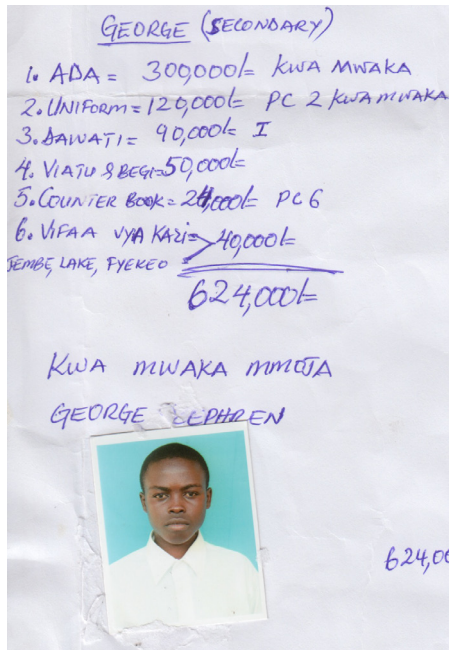 GEORGE (SECONDARY)
1. ADA = 300,000/= KWA MWAKA
2. UNIFORM = 120,000/= PC 2 KWA MWAKA
3. DAWATI = 90,000/= I
4. VIATU & BEGI = 50,000/=
5. COUNTER BOOK = 24,000/= PC 6
6. VIFAA VYA KAZI = 40,000/=
JEMBE, LAKE, FYEKEO =
624,000/=
KWA MWAKA MMOJA
GEORGE
624,00